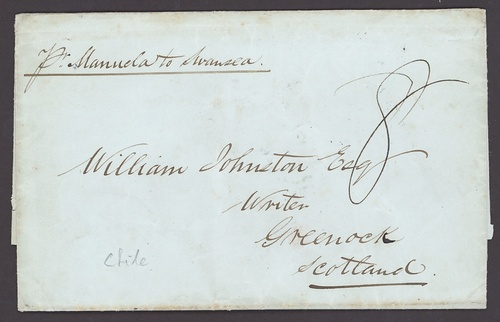 Pr. Manuela to Swansea.
8
William Johnston Esq
Writer
Greenock
Scotland.
Chile